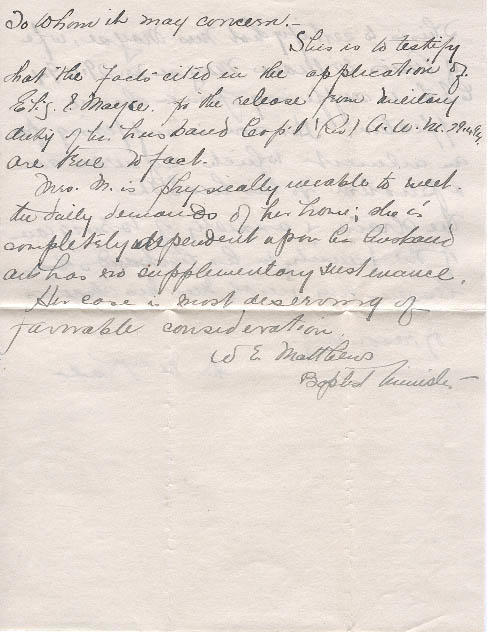 To Whom it may concern.—
This is to testify
that the facts cited in the application of
Eliz. E. Mayse. for the release from military
duty of her husband Capt. A. W. M.
are true to fact.
Mrs. M. is physically unable to meet
the daily demands of her home; she is
completely dependent upon her husband
and has no supplementary sustenance.
Her case is most deserving of
favorable consideration.
W E Matthews
Baptist Minister